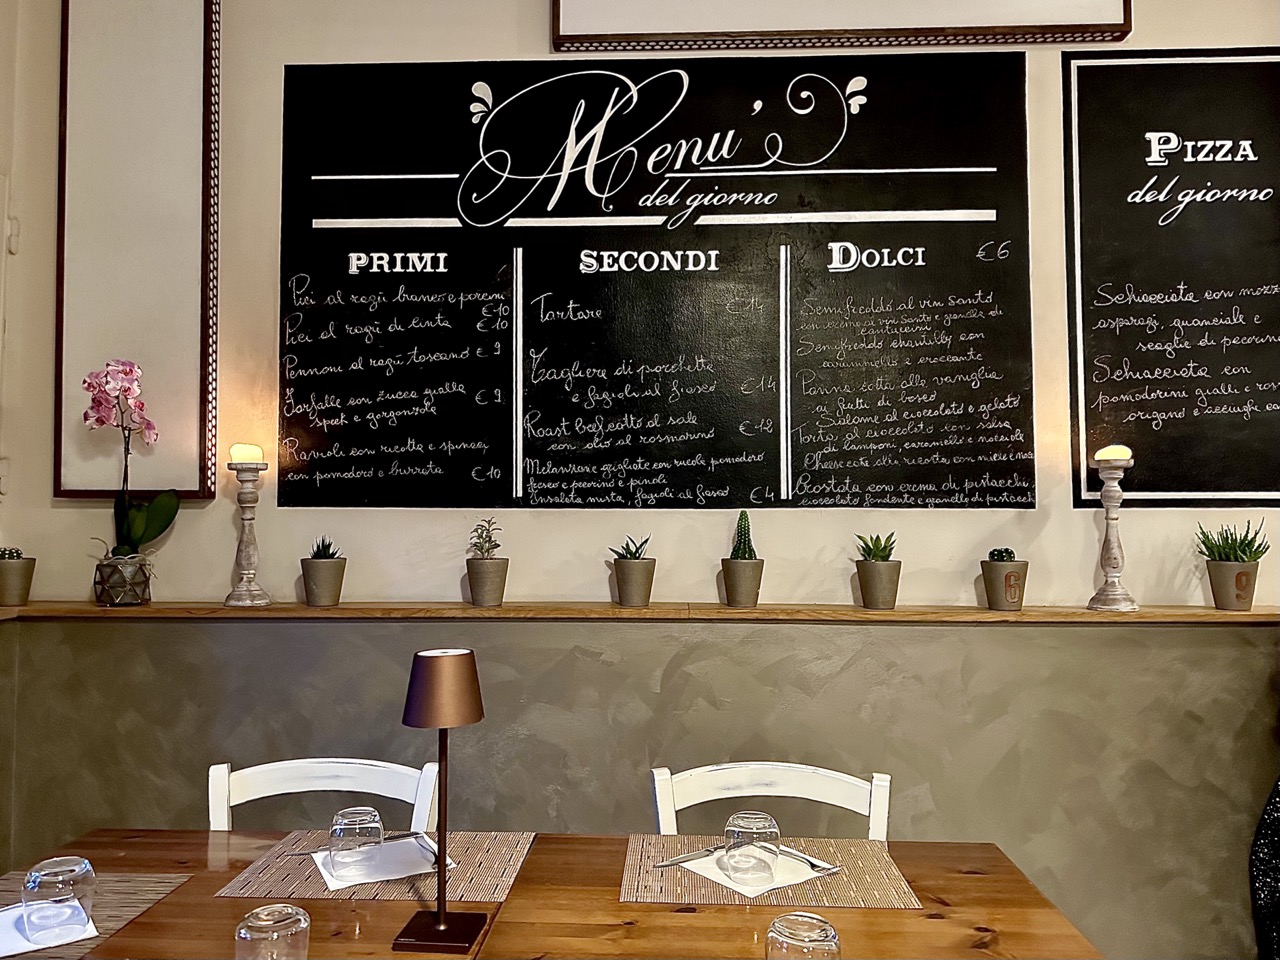 Menu'
del giorno
PRIMI
Pici al ragù bianco e porcini
€ 10
Pici al ragù di cinta € 10
Pennoni al ragù toscano € 9
Farfalle con zucca gialla
speck e gorgonzola € 9
Ravioli con ricotta e spinaci
con pomodoro e burrata € 10
SECONDI
Tartare €14
Tagliere di porchetta
e fagioli al fiasco €14
Roast beef cotto al sale
con olio al rosmarino €12
Melanzane grigliate con rucola, pomodoro
fresco e pecorino e pinoli
Insalata mista, fagioli al fiasco €4
DOLCI €6
Semifreddo al vin Santo
con crema al vin Santo e granella di
cantuccini
Semifreddo chantilly con
caramello e croccante
Panna cotta alla vaniglia
ai frutti di bosco
Salame al cioccolato e gelato
Torta al cioccolato con salsa
di lamponi, caramello e nocciola
Cheese cake di ricotta con miele e noci
Crostata con crema di pistacchi,
cioccolato fondente e granella di pistacchi
PIZZA
del giorno
Schiacciata con mozz
asparagi, guanciale e
scaglie di pecorino
Schiacciata con
pomodorini gialli e ross
origano e acciughe
6
9